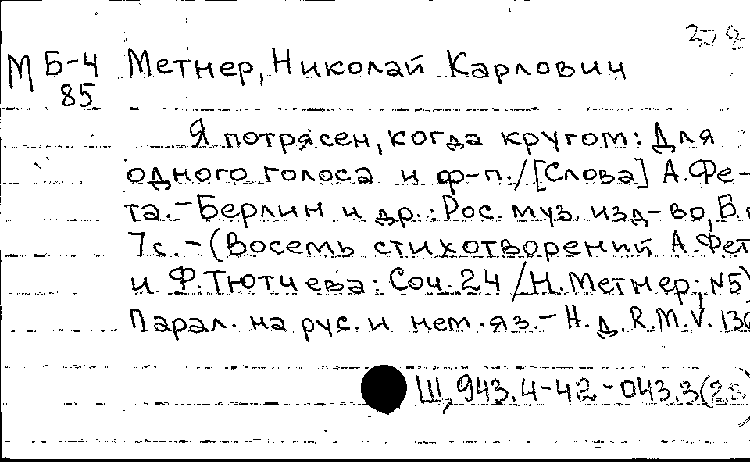 М Б-4 Метнер, Николай Карлович
85
Я потрясен, когда кругом: Для
одного голоса и ф-п./[Слова] А.Фе-
та.-Берлин и др.: Рос. муз. изд-во, Б.
7с.-(Восемь стихотворений А.Фет
и Ф.Тютчева: Соч.24/Н.Метнер; N5)
Парал. на рус. и нем. яз.- Н.д. R.M.V. 130
Ш, 943.4-42-043.3(23)